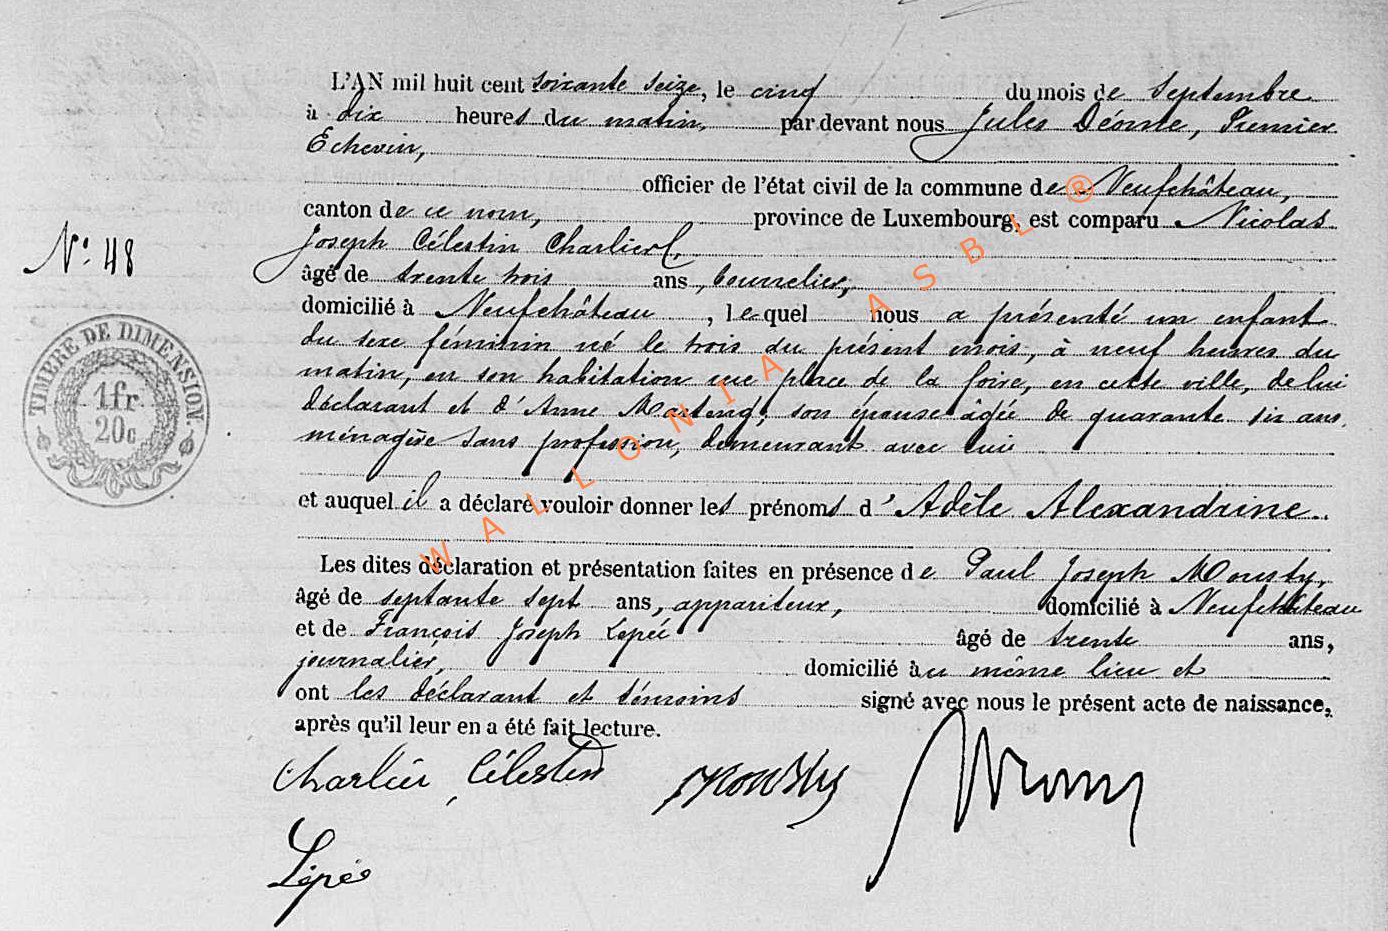 L'AN mil huit cent soixante seize, le cinq du mois de Septembre
à dix heures du matin, par devant nous Jules Premier
Echevin,
officier de l'état civil de la commune de Neufchâteau,
canton de ce nom, province de Luxembourg, est comparu Nicolas
Joseph Célestin Charlier,
N° 48
âgé de trente trois ans, bourrelier,
domicilié à Neufchâteau, lequel nous a présenté un enfant
du sexe féminin né le trois du présent mois, à neuf heures du
matin, en son habitation place de la foire, en cette ville, de lui
déclarant et d'Anne son épouse âgée de quarante six ans,
ménagère sans profession, demeurant avec lui
et auquel il a déclaré vouloir donner les prénoms d'Adèle Alexandrine.
Les dites déclaration et présentation faites en présence de Paul Joseph Mousty,
âgé de septante sept ans, appariteur, domicilié à Neufchâteau
et de François Joseph Lépée âgé de trente ans,
journalier, domicilié au même lieu et
ont les déclarant et témoins signé avec nous le présent acte de naissance,
après qu'il leur en a été fait lecture.
Charlier Célestin Mousty
Lépée
TIMBRE DE DIMENSION.
1fr
20c
WALLONIA ASBL ®